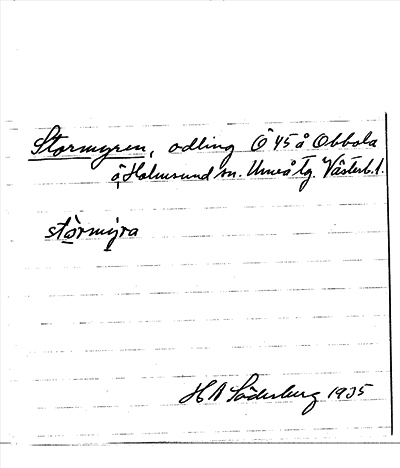 Stormyren, odling Ö 45 å Obbola
ö, Holmsund sn. Umeå tg. Västerb. l.
stòrmýra
H A Söderberg 1935